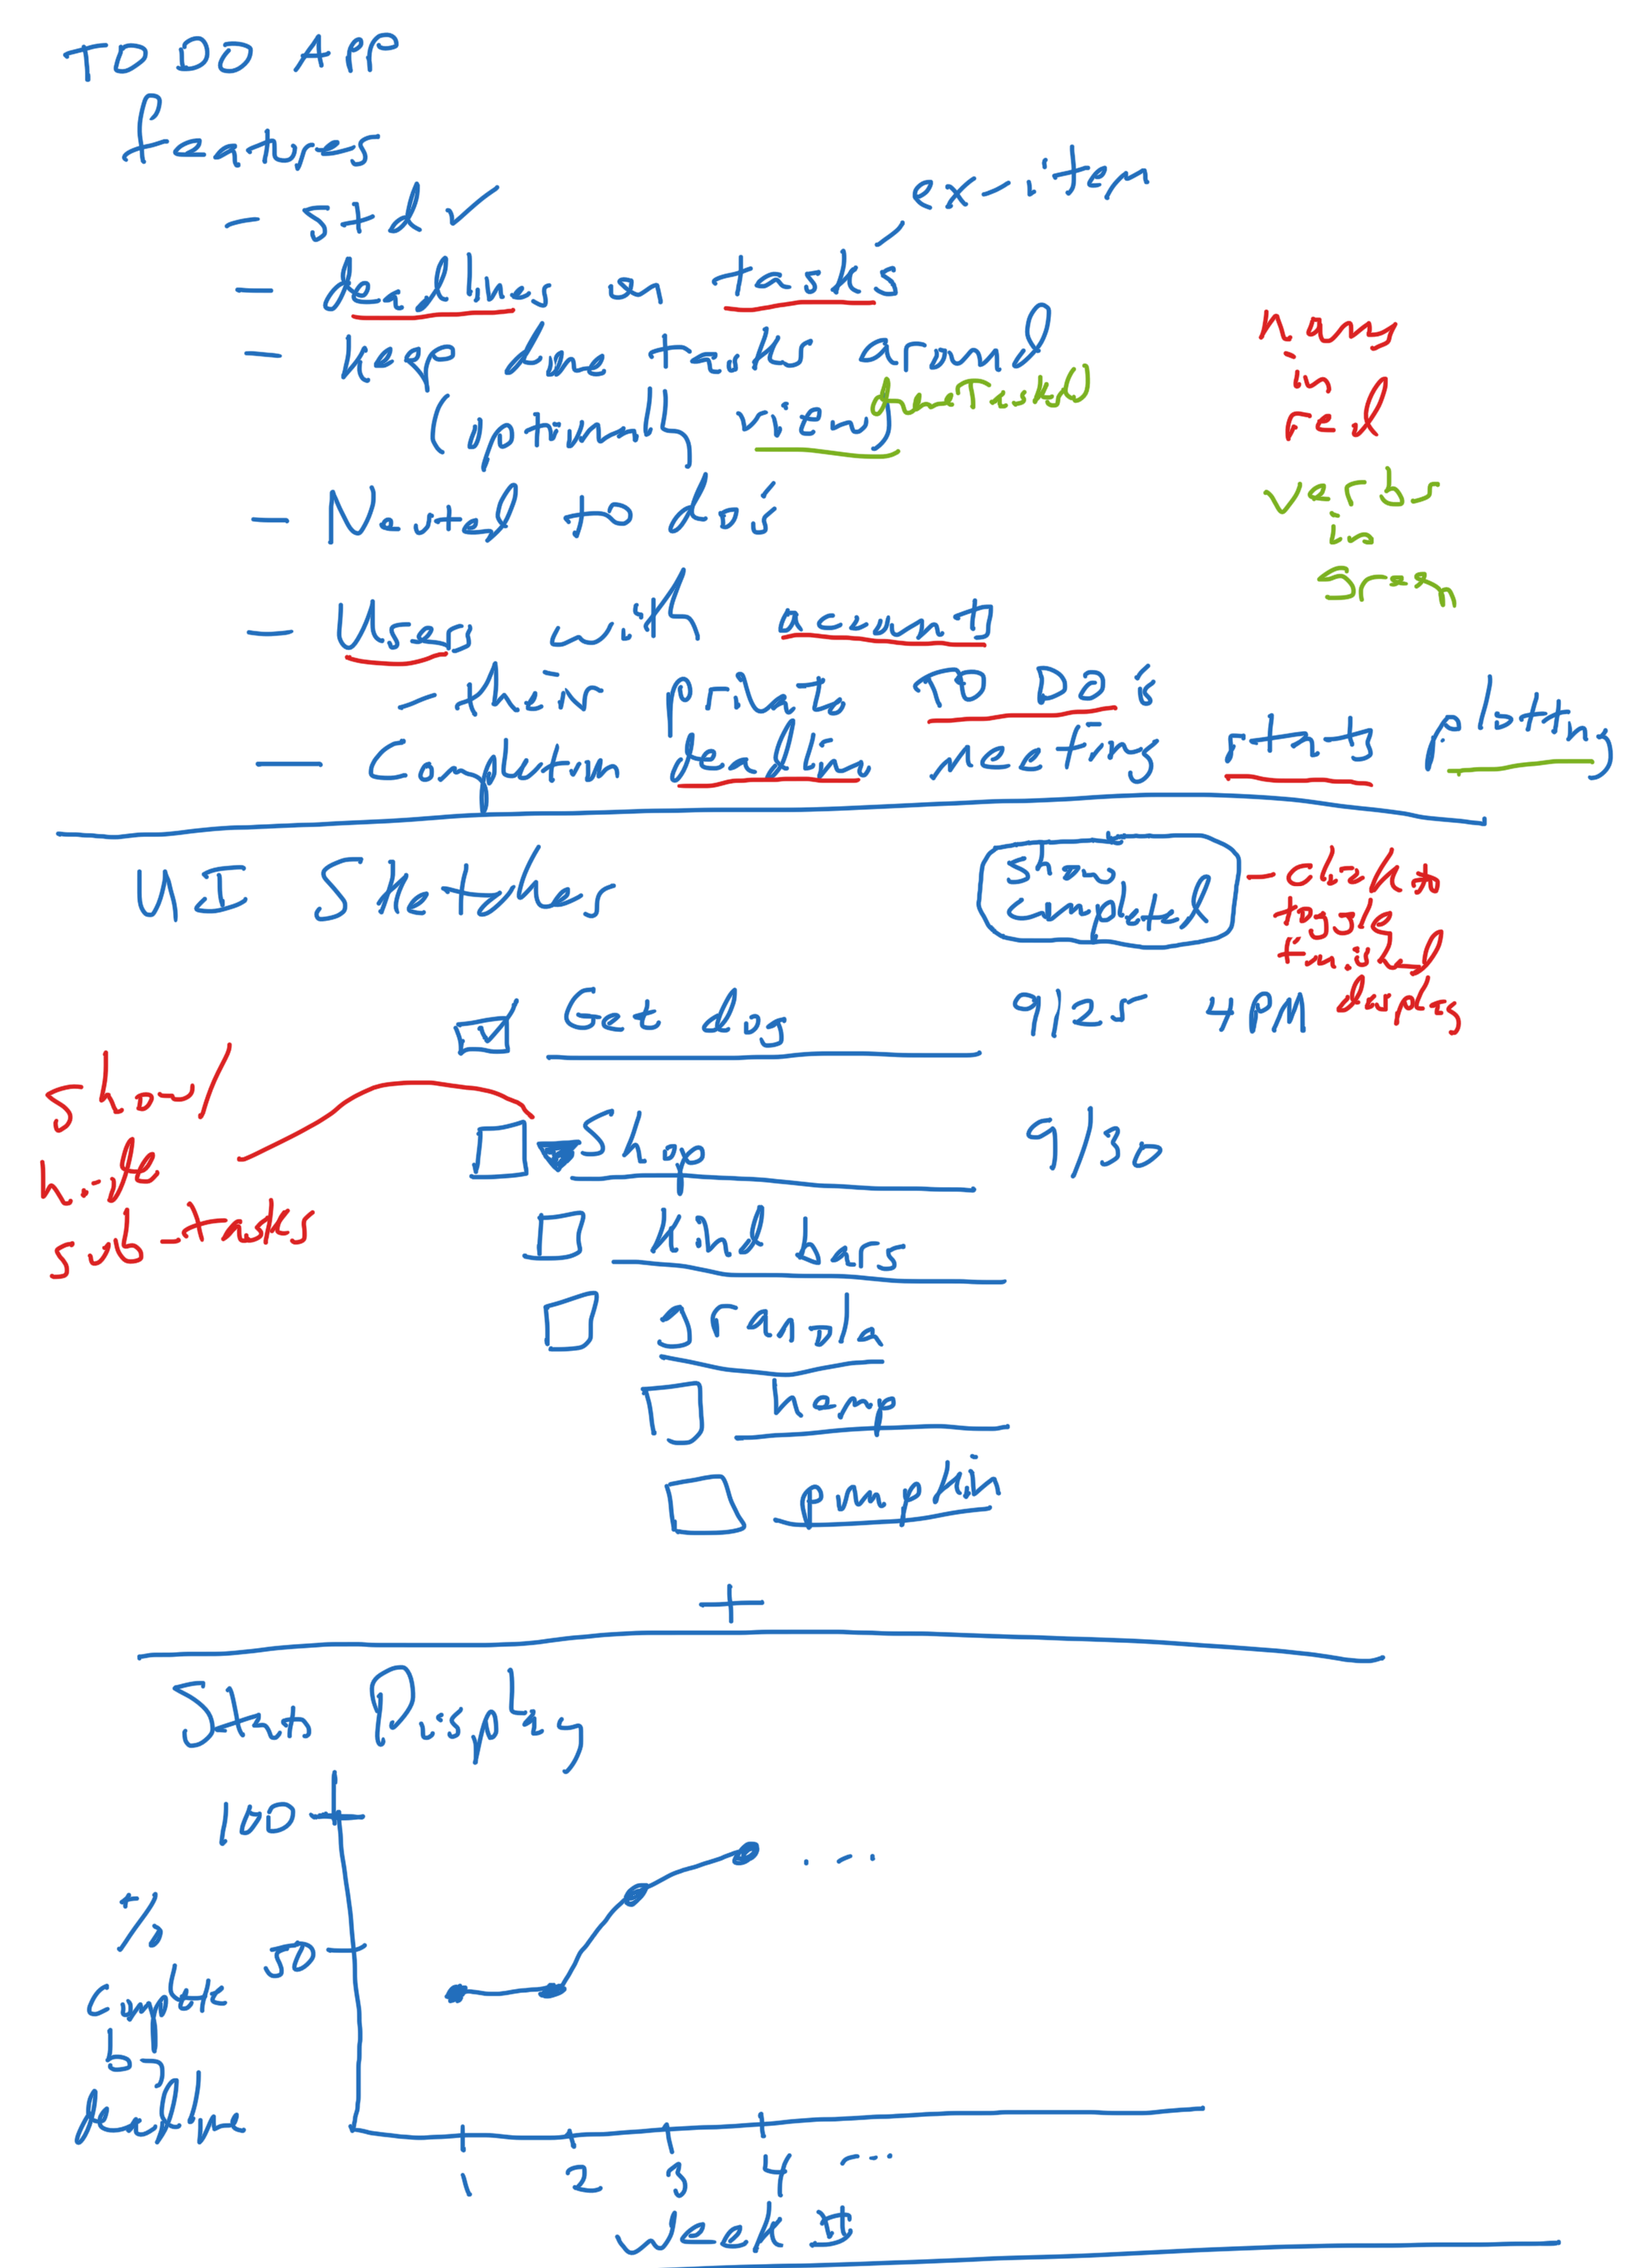 TO DO APP
features
- std ✓
- deadlines on tasks
ex-item
- keep done tasks around
(optionally viewing
done/Finished)
- Nested to do's
- Users with account
- their private TO DO's
- Completion deadline meeting stats plotting
Nouns
in
red
verbs
in
green
UI Sketches
Show
Completed
- click to
toggle
finished
display
Get dog 9/25 4PM
Show/
hide
sub-tasks
Shop 9/30
kind bars
granola
hemp
pumpkin
+
Stats Display
100
50
%
complete
by
deadline
1 2 3 4 ....
Week #